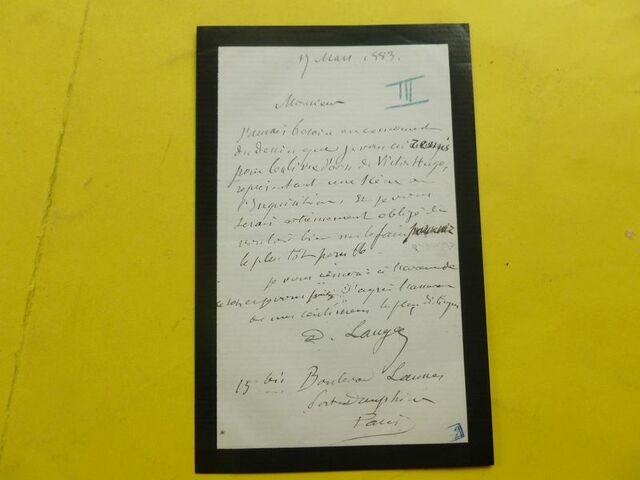 17 Mars 1883.
III
Monsieur
J'aurais besoin en ce moment
du dessin que je vous ai remis
pour le livre d'or de Victor Hugo,
représentant une scène de
l'Inquisition, et je vous
serais extrêmement obligé de
vouloir bien me le faire parvenir
le plus tôt possible
je vous à l'avance
et vous d'agréer l'assurance
de mes sentiments les plus distingués
D. Laugée
15 bis Boulevard Lannes
Porte Dauphine
Paris